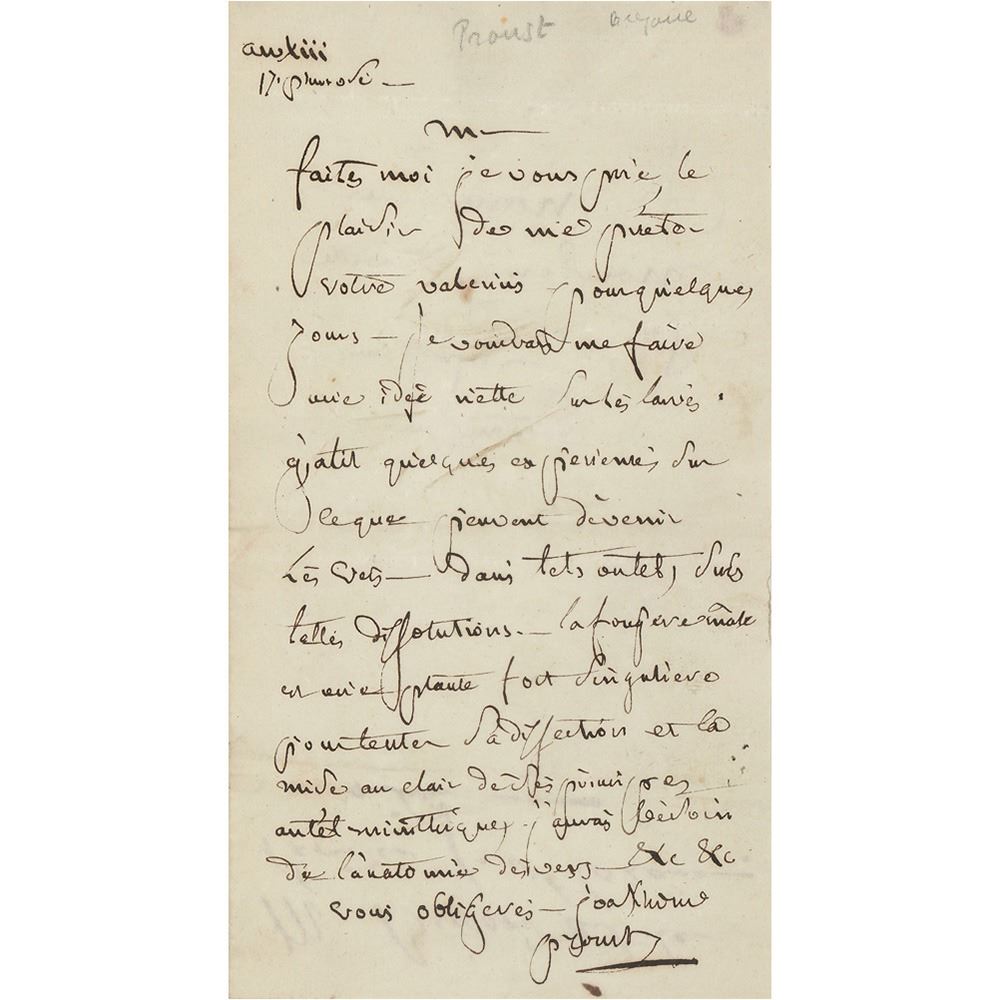 Proust
an xiii
17 pluviose —
M —
faites moi je vous prie, le
plaisir de me preter
votre valerius pour quelques
jours — je voudrais me faire
une idée nette sur les larves.
quelques experiences sur
le que peuvent devenir
les vers — dans tels ou tels sucs
telles dissolutions. — la fougere male
est une plante fort singuliere
pour tenter sa dissection et la
mise au clair de ses principes
antelminthiques, j'aurai besoin
de l'anatomie des vers — &c &c
vous obligerès — joakhime
proust